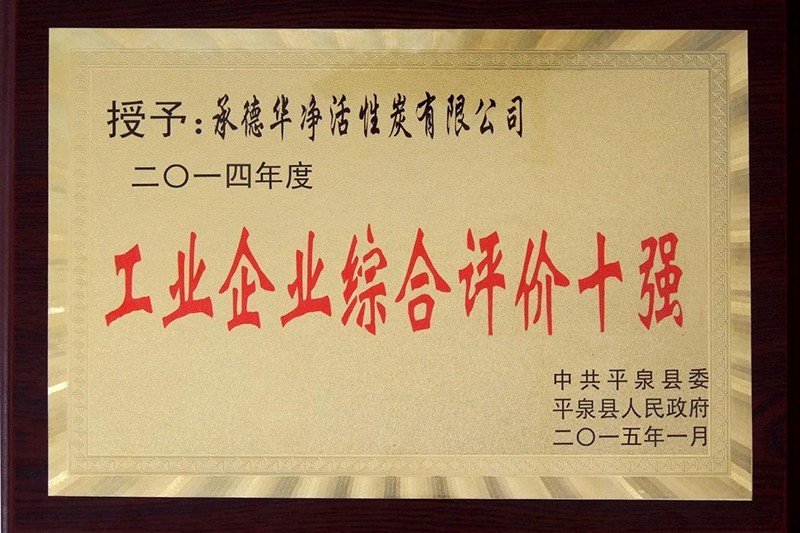 授予:承德华净活性炭有限公司
二〇一四年度
工业企业综合评价十强
中共平泉县委
平泉县人民政府
二〇一五年一月